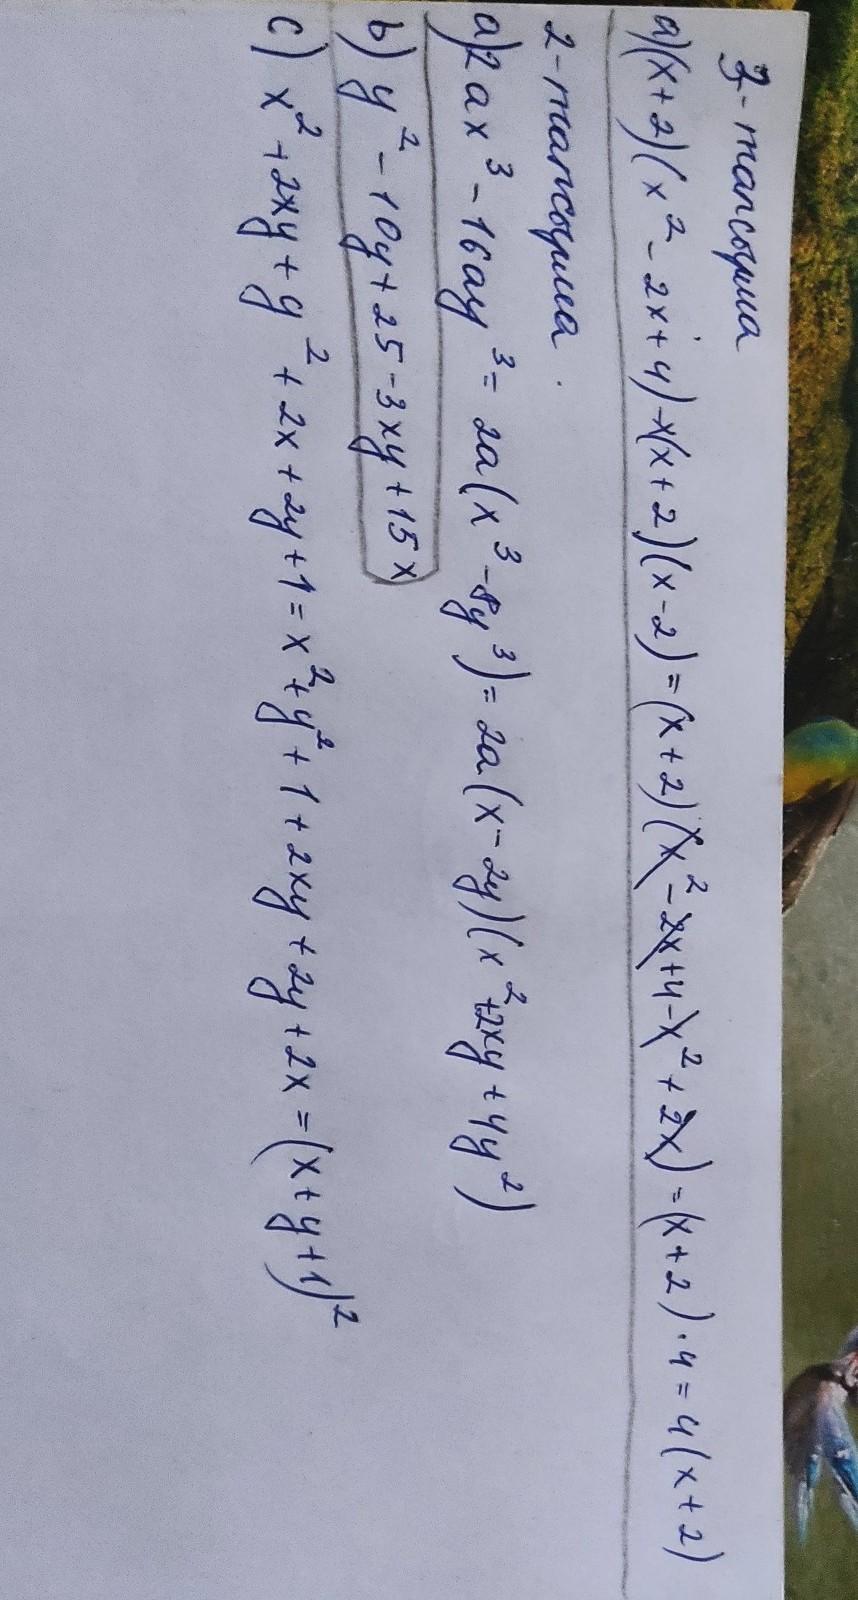 3-тапсырма
a)(x+2)(x² - 2x+4)-x(x+2)(x-2)=(x+2)(x²-2x+4-x²+2x)=(x+2)·4=4(x+2)
2-тапсырма.
a)2ax³-16ay³=2a(x³-8y³)=2a(x-2y)(x²+2xy+4y²)
b) y²-10y+25-3xy+15x
c) x²+2xy+y²+2x+2y+1=x²+y²+1+2xy+2y+2x=(x+y+1)²